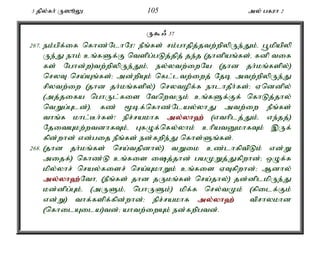 3 தில்கர் ருஸூலு 105 அல் பகரா 2
ருகூஃ 37
267. நம்பிக்கை கொண்டோரே! நீங்கள் சம்பாதித்தவற்றிலிருந்தும், பூமியிலி
ருந்து நாம் உங்களுக்கு வெளிப்படுத்தித் தந்த (தானியங்கள், கனி வகை
கள் போன்ற)வற்றிலிருந்தும், நல்லவற்றையே (தான தர்மங்களில்)
செலவு செய்யுங்கள்; அன்றியும் கெட்டவற்றைத் தேடி அவற்றிலிருந்து
சிலவற்றை (தான தர்மங்களில்) செலவழிக்க நாடாதீர்கள்; ஏனெனில்
(அத்தகைய பொருட்களை வேறெவரும் உங்களுக்குக் கொடுத்தால்
வெறுப்புடன்), கண் மூடிக்கொண்டேயல்லாது அவற்றை நீங்கள்
வாங்க மாட்டீர்கள்; நிச்சயமாக அல்லாஹ் (எவரிடத்தும், எந்தத்)
தேவையுமற்றவனாகவும், புகழுக்கெல்லாம் உரியவனுமாகவும் இருக்
கின்றான் என்பதை நீங்கள் நன்கறிந்து கொள்ளுங்கள்.
268. (தான தர்மங்கள் செய்வதினால்) வறுமை உண்டாகிவிடும் என்று
அதைக்) கொண்டு உங்களை ஷைத்தான் பயமுறுத்துகிறான்; ஒழுக்க
மில்லாச் செயல்களைச் செய்யுமாறும் உங்களை ஏவுகிறான்; ஆனால்
அல்லாஹ்வோ, (நீங்கள் தான தருமங்கள் செய்தால்) தன்னிடமிருந்து
மன்னிப்பும், (அருளும், பொருளும்) மிக்க செல்வமும் (கிடைக்கும்
என்று) வாக்களிக்கின்றான்; நிச்சயமாக அல்லாஹ் விசாலமான
(கொடையுடைய)வன்; யாவற்றையும் நன்கறிபவன்.